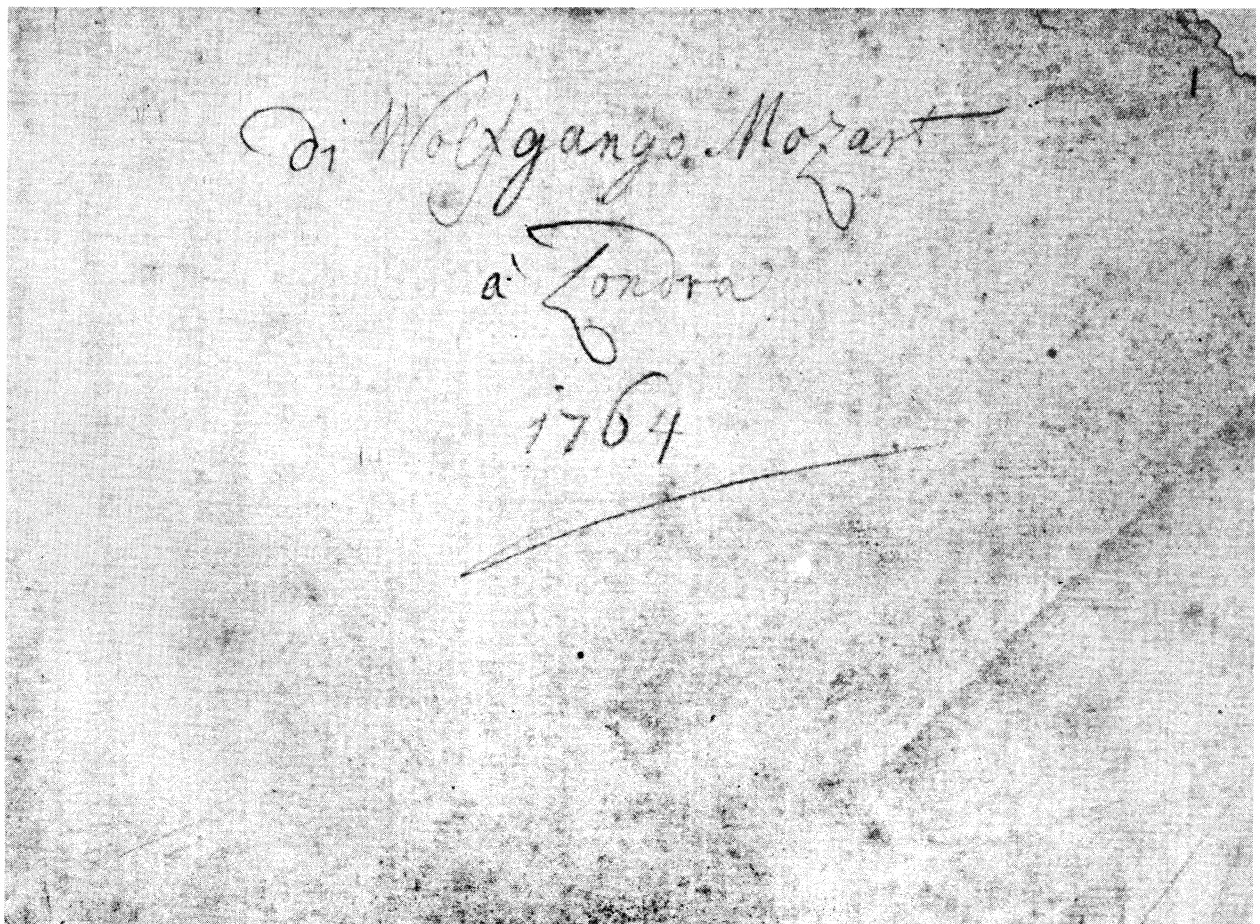 di Wolfgango Mozart
à Londra
1764